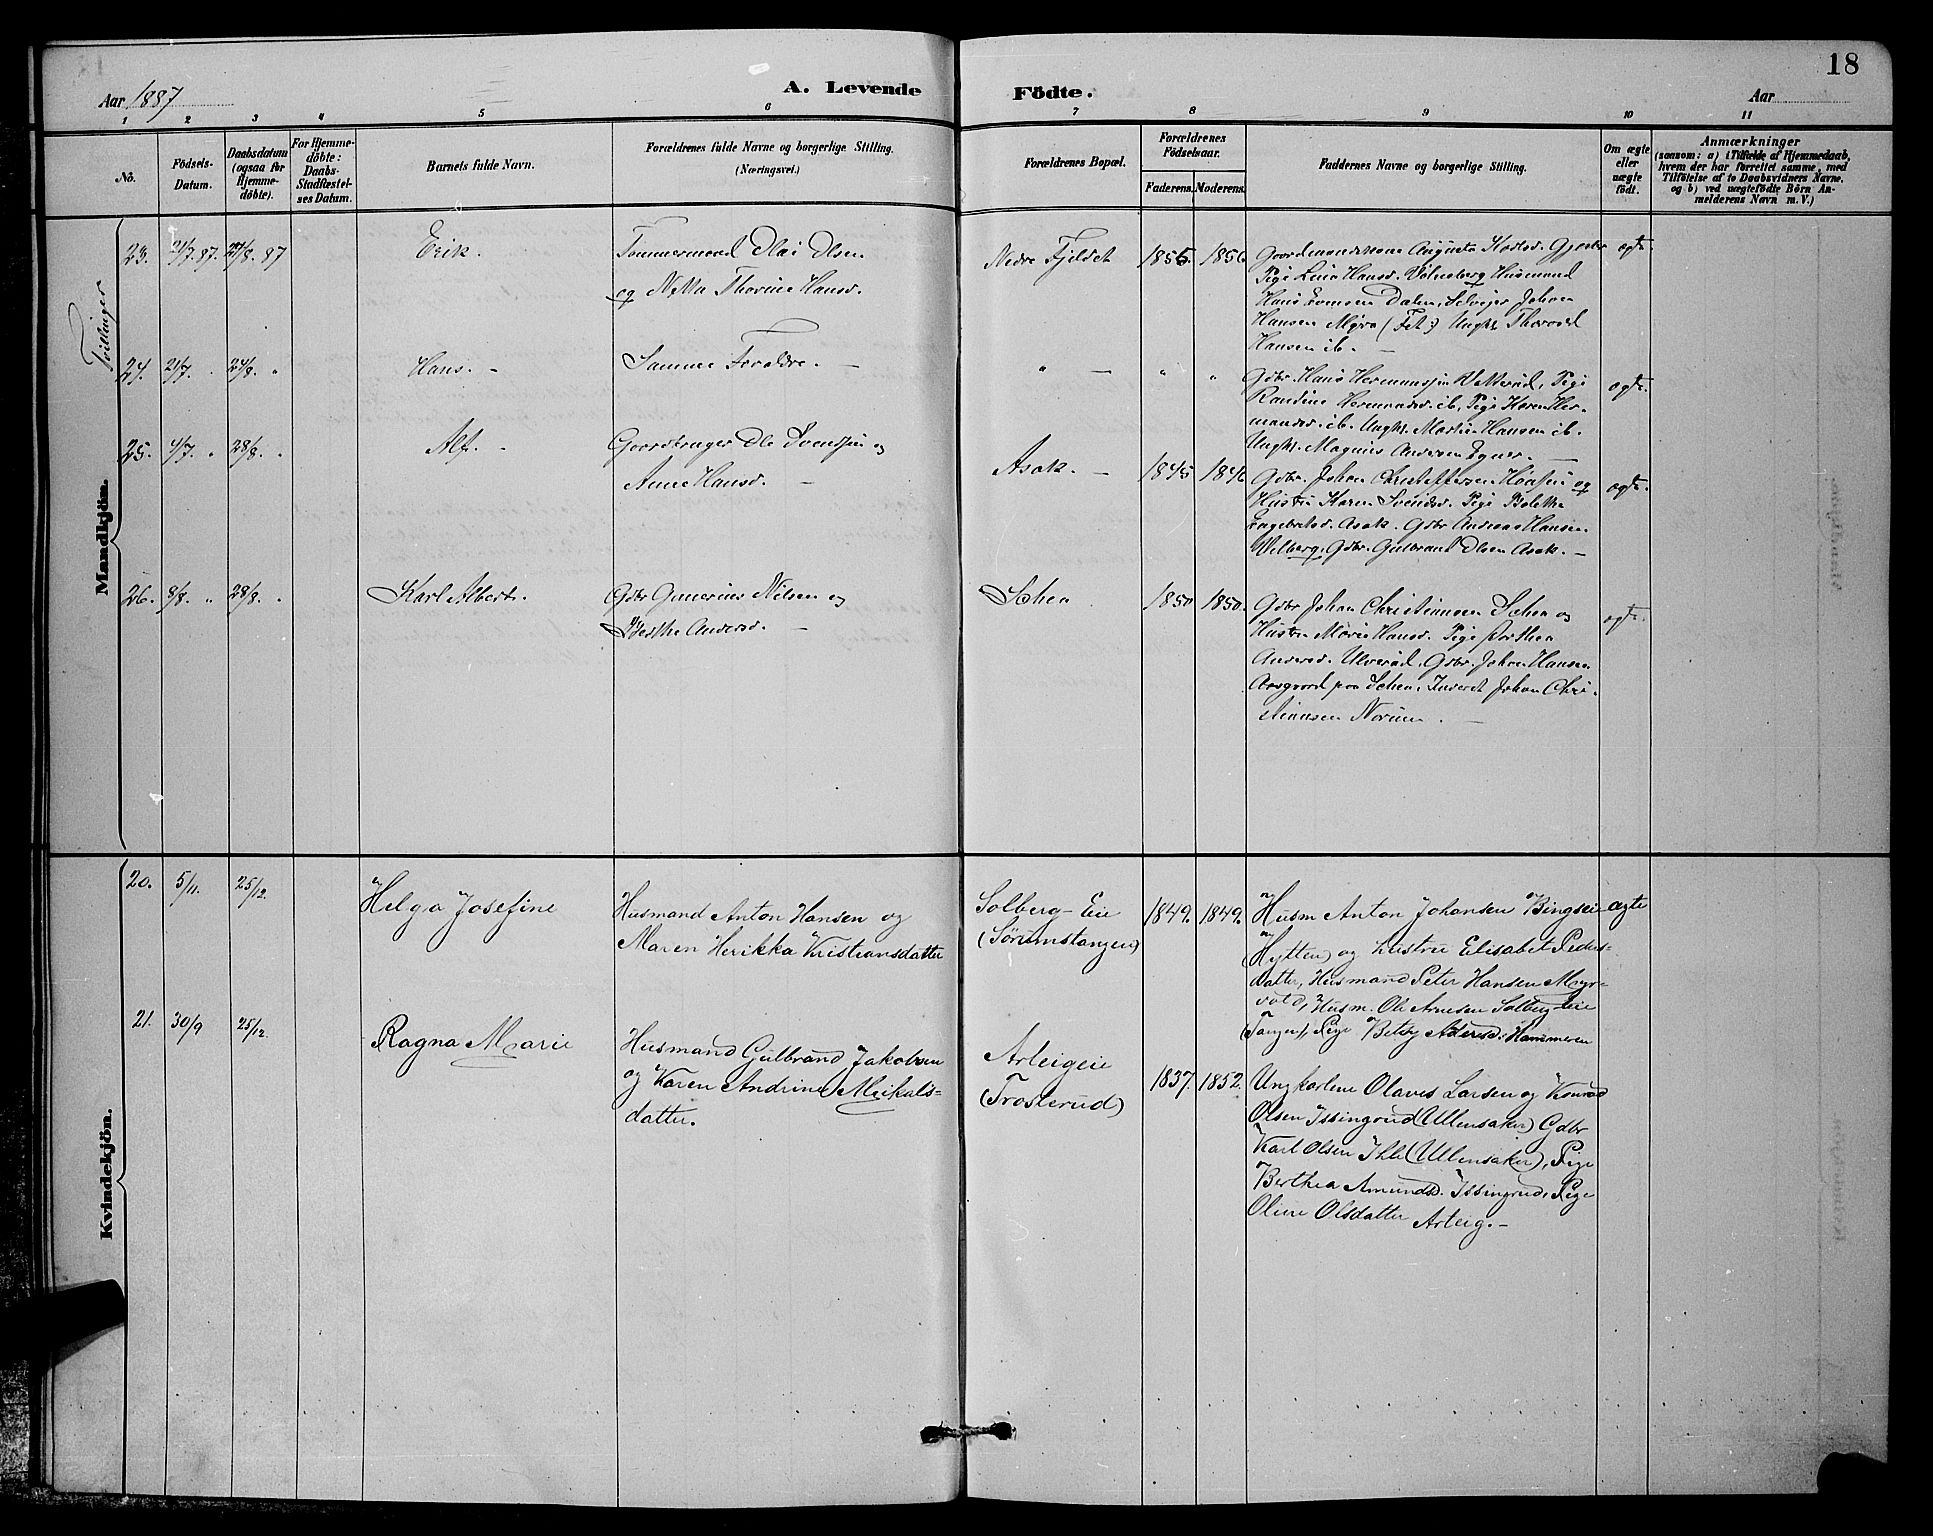 18
Aar 1887
A. Levende
Födte.
Aar
1 2 3 4 5 6 7 8 9 10 11
No.
Födsels-
Datum.
Daabsdatum
(ogsaa for
Hjemme-
döbte).
For Hjemme-
döbte:
Daabs-
Stadfæstel-
ses Datum.
Barnets fulde Navn.
Forældrenes fulde Navne og borgerlige Stilling.
(Næringsvei.)
Forældrenes Bopæl.
Forældrenes
Födselsaar.
Faderens. Moderens.
Faddernes Navne og borgerlige Stilling.
Om ægte
eller
uægte
födt.
Anmærkninger
(saasom: a) i Tilfælde af Hjemmedaab,
hvem der har forrettet samme, med
Tilföielse af to Daabsvidners Navne.
og b) ved uægtefödte Börn An-
melderens Navn m. V.)
Mandkjön.
Tvillinger
23. 21/7 87. 24/8 87
Erik.
Tømmermand Olai Olsen
og Netta Thorine Hansd.
Nedre Fjeldet
1856. 1856
Gaardmandskone Augusta
Pige Lina Hansd. Husmand
Hans Evensen Dalen, Selveier Johan
Hansen Myra (Fet) Ungk. Thorvald
Hansen ib. —
ægte
24. 21/7. " 24/8 "
Hans. -
Samme Forældre. —
" — " "
Gdbr. Hans Hermansen Vetterud, Pige
Randine Hermandsd. ib, Pige Karen Her-
mandsd. ib. Ungk. Martin Hansen ib.
Ungk. Magnus Andersen Egner. —
ægte.
25. 4/7. " 28/8. "
Alf. -
Gaardbruger Ole Svendsen og
Anne Hansd. —
Asak. —
1845 1846
Gdbr. Johan Christoffersen og
Hustru Karen Svendsd. Pige Bolette
Engebretsd. Asak. Gdbr Andreas Hansen
Vilberg, Gdbr. Gulbrand Olsen Asak. —
ægte.
26. 8/8. " 28/8. "
Karl Albert.
Gdbr Gunerius Nilsen og
Berthe Andersd. —
1850 1850.
Gdbr Johan Christiansen og
Hustru Marie Hansd. Pige Berthea
Andersd. Ulverud, Gdbr. Johan Hansen
Aasgaard paa Johan Chri-
stiansen Norum. —
ægte.
Kvindekjön.
20. 5/11. 25/12.
Helga Josefine
Husmand Anton Hansen og
Maren Herikka Kristiansdatter
Solberg-Eie
(Sørumstangen)
1849. 1849.
Husm Anton Johansen Bingseie
(Hytten) og hustru Elisabet Peders-
datter, Husmand Peter Hansen Myr-
vold, Husm. Ole Arnesen Solberg-eie
(Tangen), Pige Betsy Adersd. Hammeren
ægte
21. 30/9 25/12.
Ragna Marie
Husmand Gulbrand Jakobsen
og Karen Andrine Meikals-
datter.
Arteigeie
(Trosterud)
1837. 1852.
Ungkarlene Olaves Larsen og Konrad
Olsen Issingrud (Ullensaker) Gdbr
Karl Olsen Ihle (Ullensaker), Pige
Berthea Amundsd. Issingrud, Pige
Oline Olsdatter Arteig. —